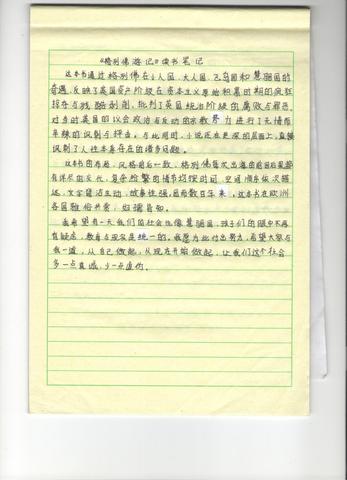 《格列佛游记》读书笔记
这本书通过格列佛在小人国、大人国、飞岛国和慧骃国的
奇遇,反映了英国资产阶级在资本主义原始积累时期的疯狂
掠夺与残酷剥削,批判了英国统治阶级的腐败与罪恶,
对当时英国的议会政治与反动的宗教势力进行了无情而
辛辣的讽刺与抨击。与此同时,小说还在更深的层面上,直接
讽刺了人性本身存在的诸多问题。
这本书的布局、风格前后一致,格列佛每次出海的前因后果都
有详尽的交代,复杂纷繁的情节均按时间、空间顺序依次描
述,文字简洁生动,故事性强。因而数百年来,这本书在欧洲
各国雅俗共赏,妇孺皆知。
我希望有一天我们的社会也像慧骃国,孩子们的眼中不再
有疑惑,教育与现实是统一的。我愿为此付出努力,希望大家与
我一道,从自己做起,从现在开始做起,让我们这个社会
多一点真诚,少一点虚伪。